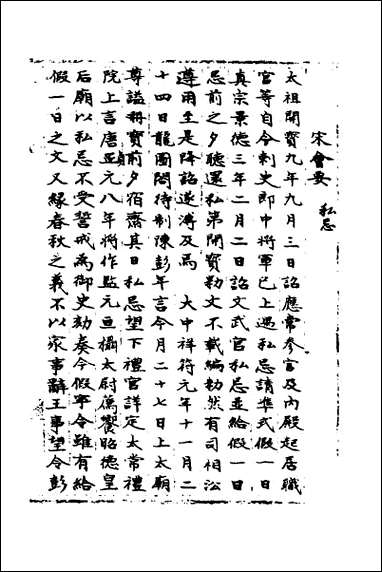 宋會要 私忌
太祖開寶九年九月三日詔應常參官及內殿起居職
官等自今刺史郎中將軍已上遇私忌請準式假一日
真宗景德三年二月二日詔文武官私忌並給假一日
忌前之夕聽還私第開寶勅文不載編勅然有司相沿
遵用至是降詔遂溥及焉 大中祥符元年十一月二
十四日龍圖閣待制陳彭年言今月二十七日上太廟
尊謚冊寶前夕宿齋其日私忌望下禮官詳定太常禮
院上言唐貞元八年將作監元亘攝太尉薦饗昭德皇
后廟以私忌不受誓戒為御史劾奏今假寧令雖有給
假一日之文又緣春秋之義不以家事辭王事望令彭